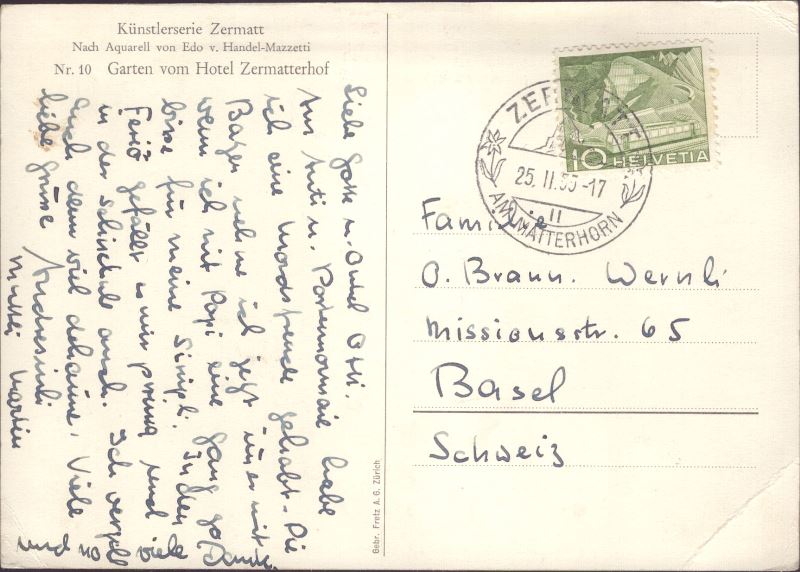 Künstlerserie Zermatt
Nach Aquarell von Edo v. Handel-Mazzetti
Nr. 10 Garten vom Hotel Zermatterhof
Liebe Gotte u. Onkel Otti.
Am Auti u. Portemonnaie habe
ich eine Mordsfreude gehabt. Die
Bazen nehme ich jezt immer mit
wenn ich mit Papi eine gang go
bise für meine Simpli. In den
Ferie gefällt es mir prima und
in der Schischule auch. Ich vergell
Euch denn viel deheime. Viele
liebe Grüsse Andresindi
Mutti Martin
und no viele Dank.
Gebr. Fretz A. G. Zürich
ZERMATT
25. II. 55 -17
AM MATTERHORN
10 HELVETIA
Familie
O. Braun. Wernli
Missionsstr. 65
Basel
Schweiz